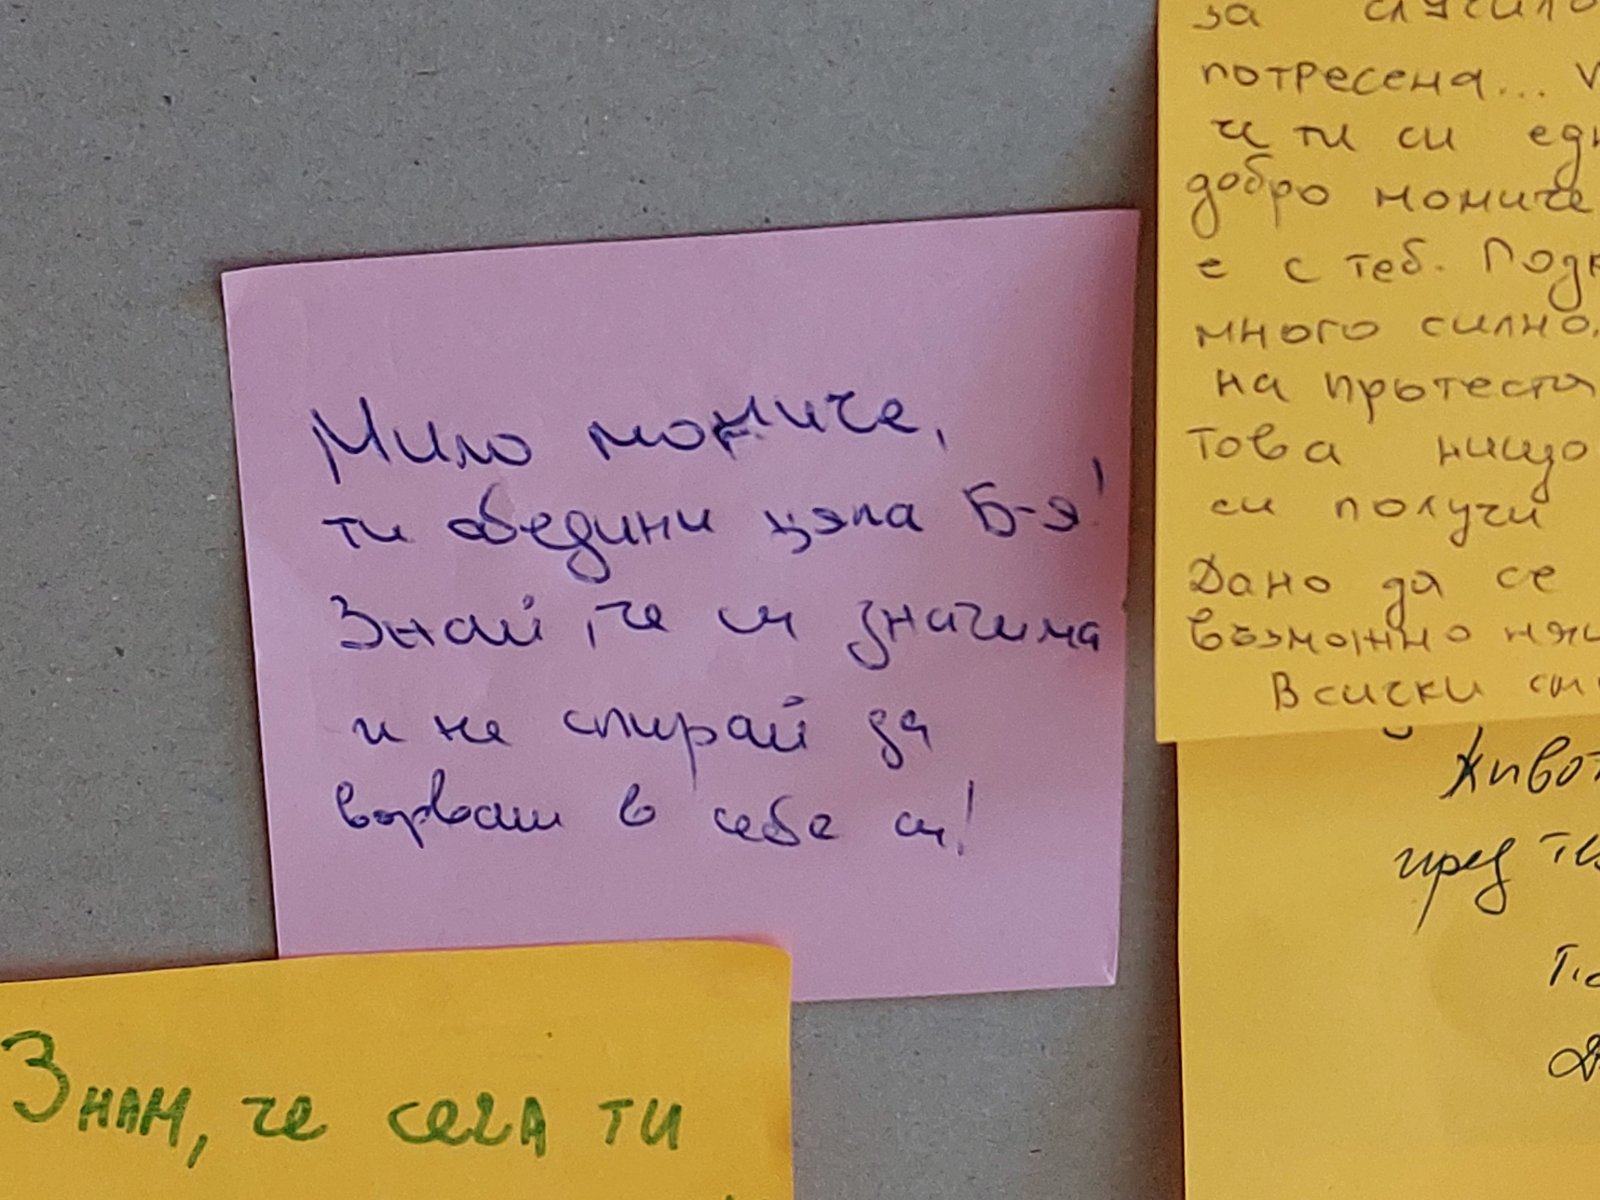 Мило момиче,
ти обедини цяла Б-я!
Знай, че си значима
и не спирай да
вярваш в себе си!
за случило
потресена...
че ти си едн
добро момиче
е с теб. Подк
много силно.
на протестя
това нищо
си получи
Дано да се
възможно няк
Всички см
живот
пред те
Знам, че сега ти